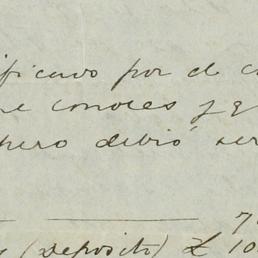 ificado por el c
ue conoces y q
pero debió ser
7
(Deposito) £ 10